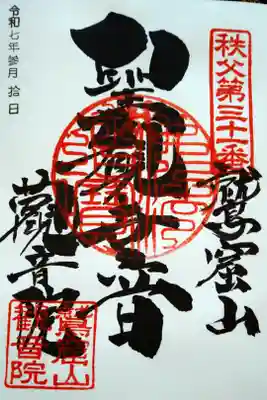 秩父第三十一番
鷲窟山
聖観世音
觀音院
令和七年参月拾日
鷲窟山
観音院